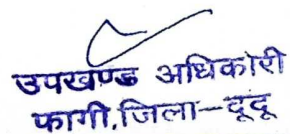 उपखण्ड अधिकारी
फागी,जिला-दूदू